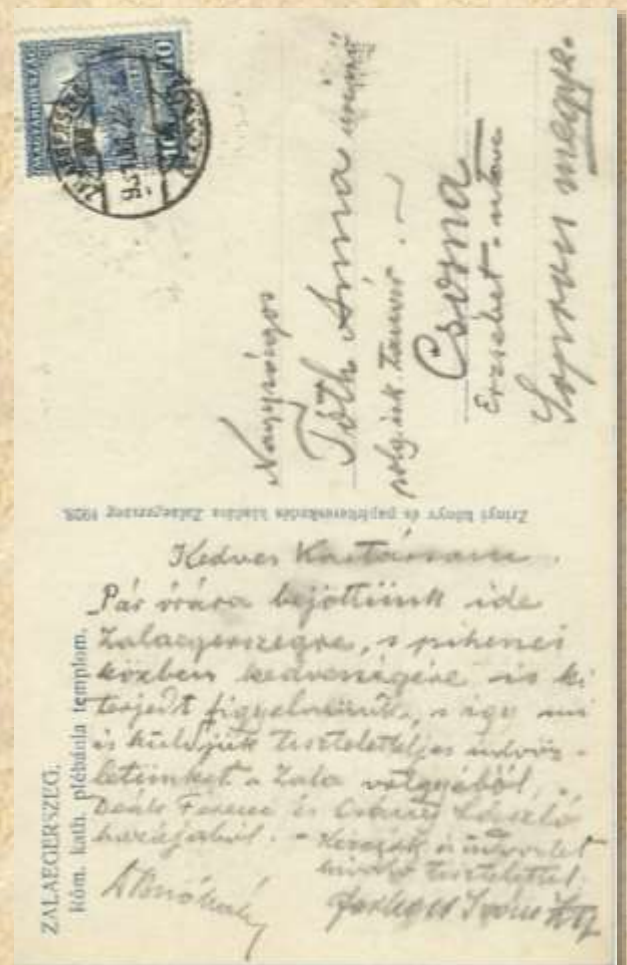 ZALAEGERSZEG.
Róm. kath. plébánia templom.
Zrinyi könyv és papirkereskedés kiadása Zalaegerszeg 1928.
MAGYARORSZÁG
Nagyságos
Tóth Anna
polg. isk. tanár
Csorna
Erzsébet-utca
Sopron megye.
Kedves
Pár órára bejöttünk ide
Zalaegerszegre, s pihenés
közben kedvességére is ki
terjedt figyelmünk, s így mi
is küldjük tiszteletteljes üdvöz-
letünket a Zala völgyéből,
Deák Ferenc és Csány László
hazájából. -
kiváló tisztelettel